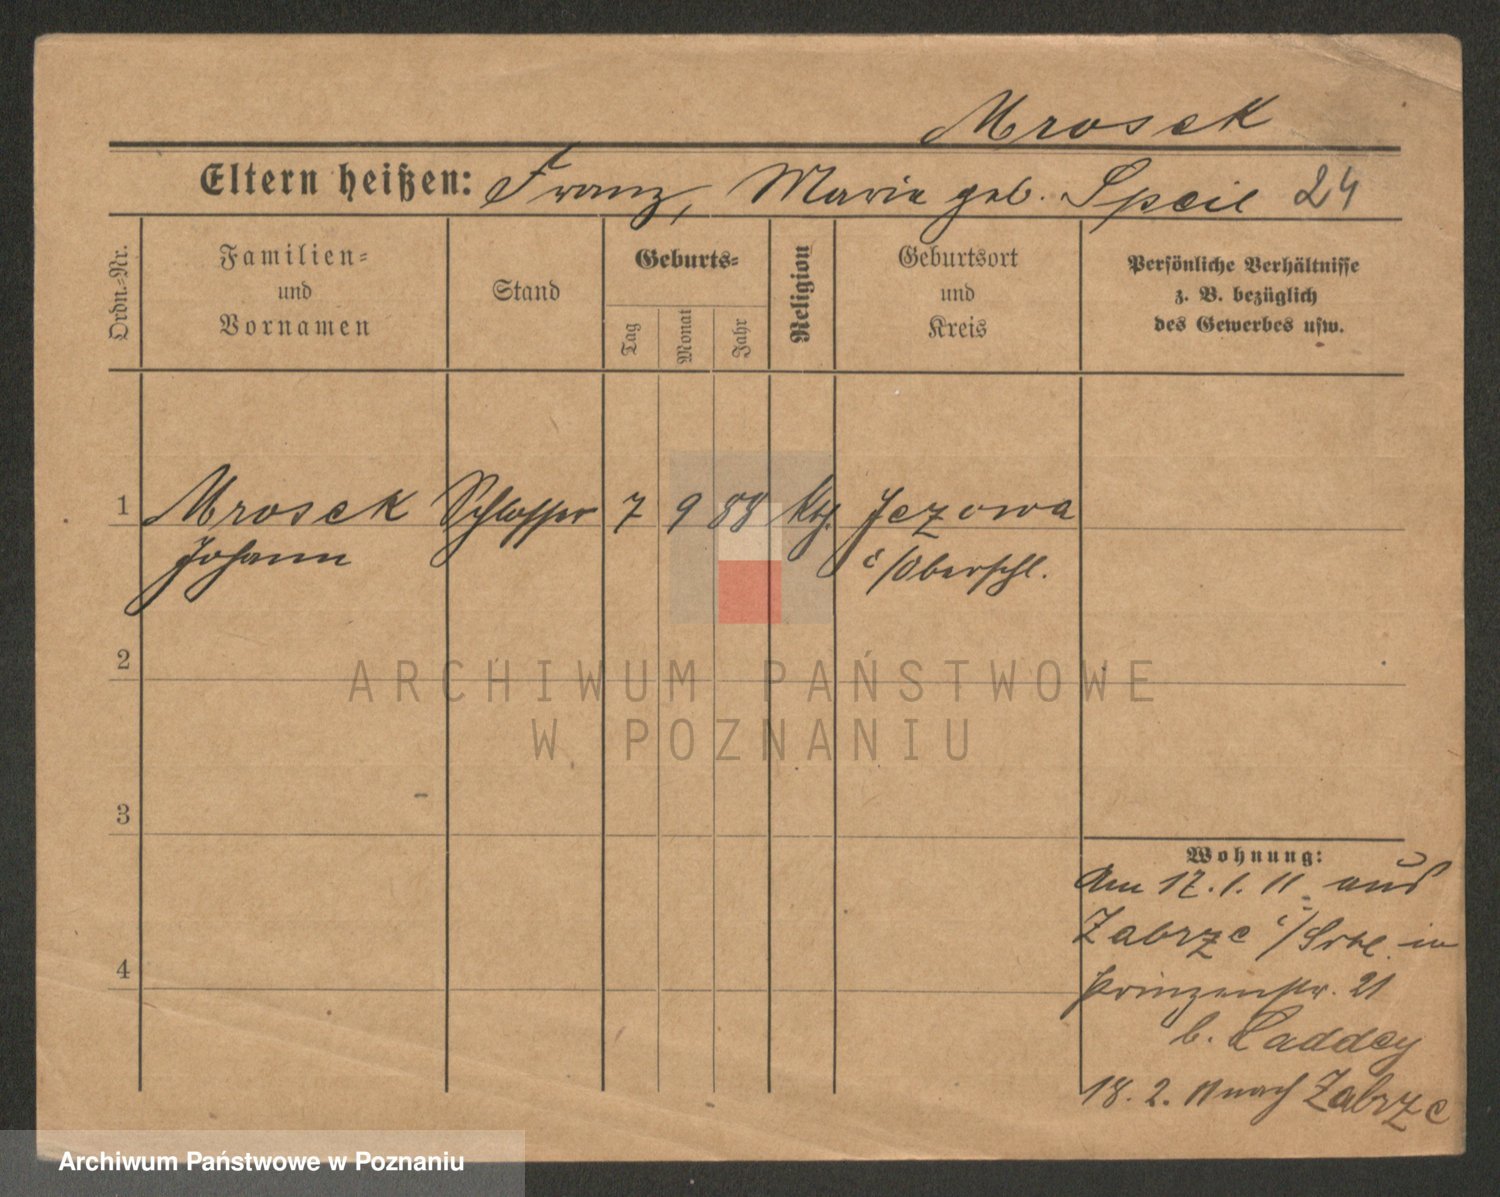 Mrosek
Eltern heißen: Franz, Marie geb. Speil 24
Ordn.-Nr.
Familien-
und
Vornamen
Stand
Geburts-
Tag
Monat
Jahr
Religion
Geburtsort
und
Kreis
Persönliche Verhältnisse
z. B. bezüglich
des Gewerbes usw.
1 Mrosek Schlosser 7 9 88 kth. Jezowa
Johann i/Oberschl.
2
ARCHIWUM PAŃSTWOWE
W POZNANIU
3
Wohnung:
Am 17.1.11 aus
Zabrze i/ in
Prinzenstr. 21
4
b. Laddey
18. 2. 11 nach Zabrze
Archiwum Państwowe w Poznaniu